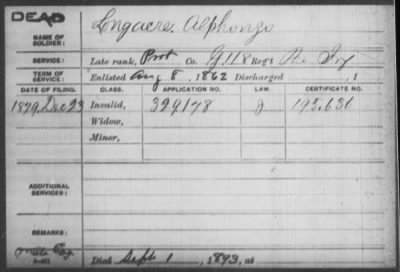 DEAD
NAME OF SOLDIER: Longacre, Alphonzo
SERVICE: Late rank, Co. G, 118 Reg't Pa. Inf
TERM OF SERVICE: Enlisted Aug 8, 1862 Discharged , 1
DATE OF FILING. CLASS. APPLICATION NO. LAW. CERTIFICATE NO.
1879, Dec 23 Invalid, 329178 J 193.630
Widow,
Minor,
ADDITIONAL SERVICES:
REMARKS:
Died Sept 1, 1893, at